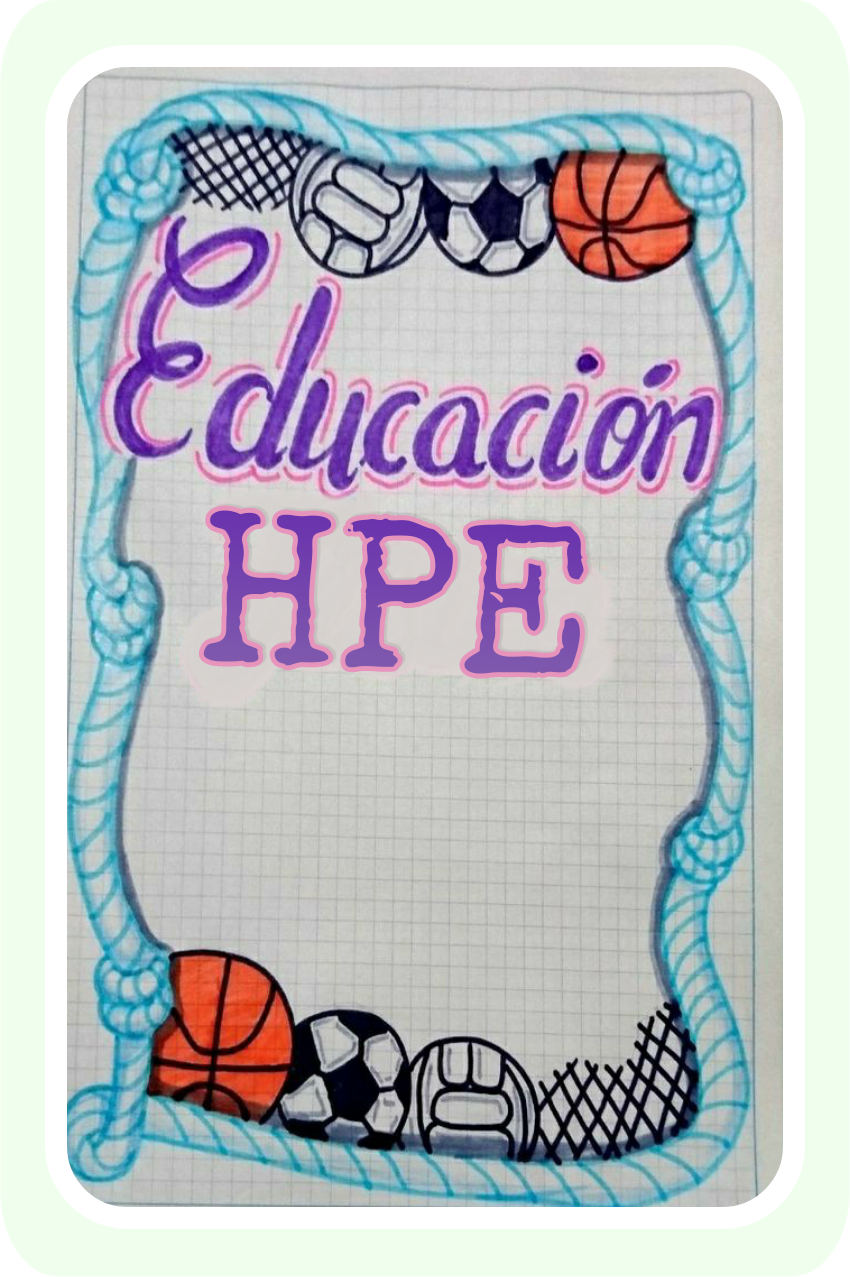 Educación
HPE